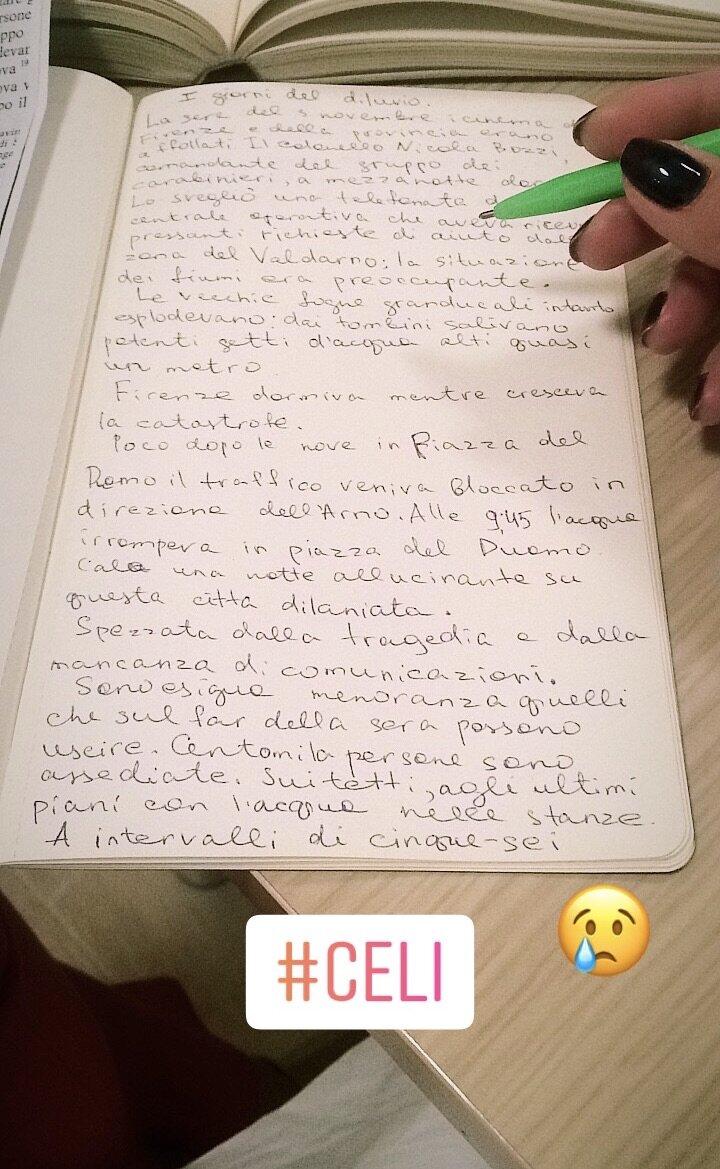 rsone
ppo
devar
ova 19
ova v
po il
I giorni del diluvio.
La sera del 5 novembre i cinema
Firenze e della provincia erano
affollati Il colonello Nicola Bozzi,
comandante del gruppo dei
carabinieri, a mezzanotte
Lo svegliò una telefonata
centrale operativa che aveva ricev
pressanti richieste di aiuto dall
zona del Valdarno: la situazione
dei fiumi era preoccupante.
Le vecchie fogne granducali intanto
esplodevano: dai tombini salivano
potenti getti d'acqua alti quasi
un metro
Firenze dormiva mentre cresceva
la catastrofe.
Poco dopo le nove in Piazza del
Domo il traffico veniva Bloccato in
direzione dell'Arno. Alle 9:45 l'acqua
irrompeva in piazza del Duomo
Cala una notte allucinante su
questa città dilaniata.
Spezzata dalla tragedia e dalla
mancanza di comunicazioni.
Sono esigua menoranza quelli
che sul far della sera possono
uscire. Centomila persone sono
assediate. Sui tetti, agli ultimi
piani con l'acqua nelle stanze.
A intervalli di cinque-sei
#CELI